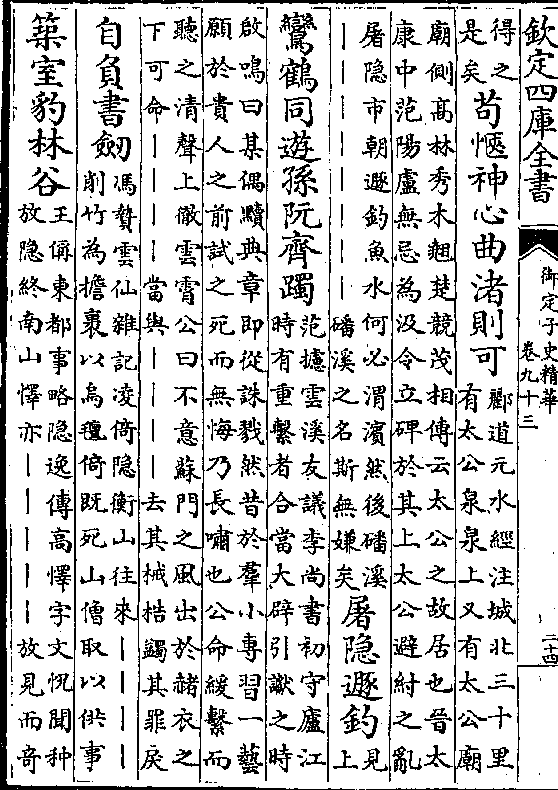 欽定四庫全書
御定子史精華
卷九十三
二十四
得之
是矣
苟愜神心曲渚則可
酈道元水經注城北三十里
有太公泉泉上又有太公廟
廟側高林秀木翹楚競茂相傳云太公之故居也晉太
康中范陽盧無忌為汲令立碑於其上太公避紂之亂
屠隐市朝遯釣魚水何必渭濱然後磻溪
｜｜｜｜｜｜｜｜磻溪之名斯無嫌矣
屠隐遯釣
見
上
鸞鶴同遊孫阮齊躅
范攄雲溪友議李尚書初守廬江
時有重繫者合當大辟引讞之時
啟鳴曰某偶黷典章即從誅戮然昔於羣小專習一藝
願於貴人之前試之死而無悔乃長嘯也公命緩繫而
聽之清聲上徹雲霄公曰不意蘇門之風出於赭衣之
下可命｜｜｜｜當與｜｜｜｜去其械梏蠲其罪戾
自負書劒
馮贄雲仙雜記凌倚隐衡山往來｜｜｜｜
削竹為擔裹以烏氊倚既死山僧取以供事
築室豹林谷
王偁東都事略隐逸傳高懌字文悅聞种
放隐終南山懌亦｜｜｜｜｜放見而奇